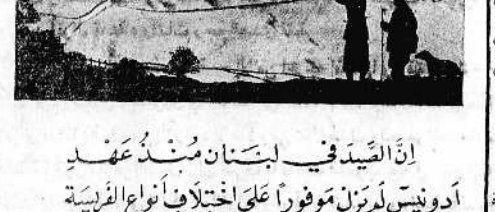 إِنَّ الصَّيدَ في لبنَنان مُنْذُ عَهْدِ
آدونيسَ لَم يَزَلْ مَوفورًا عَلَى اخْتِلَافِ أَنواعِ الفَريسَة